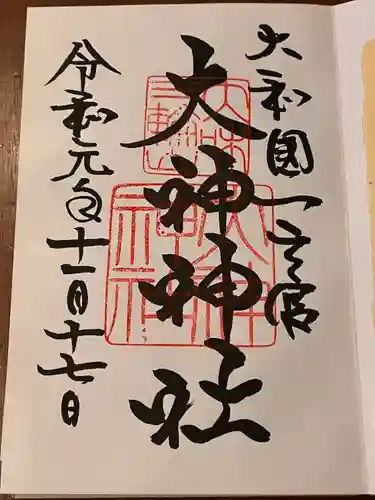 大和国一之宮
大神神社
令和元年十一月十七日